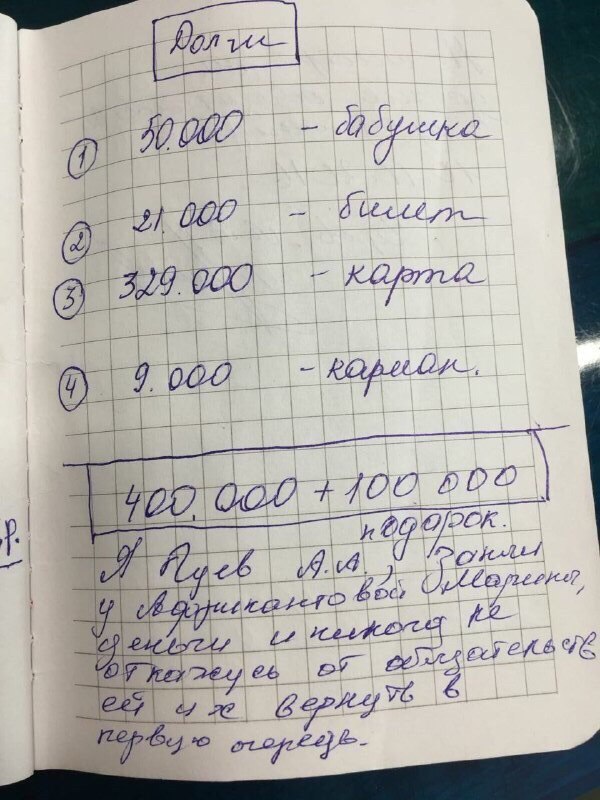 Долги
① 50.000 - бабушка
② 21.000 - билет
③ 329.000 - карта
④ 9.000 - карман.
400.000 + 100 000
подорок.
Я А.А., Занял
у Марины,
деньги и никогда не
откажусь от обязательств
ей их вернуть в
первую очередь.
р.